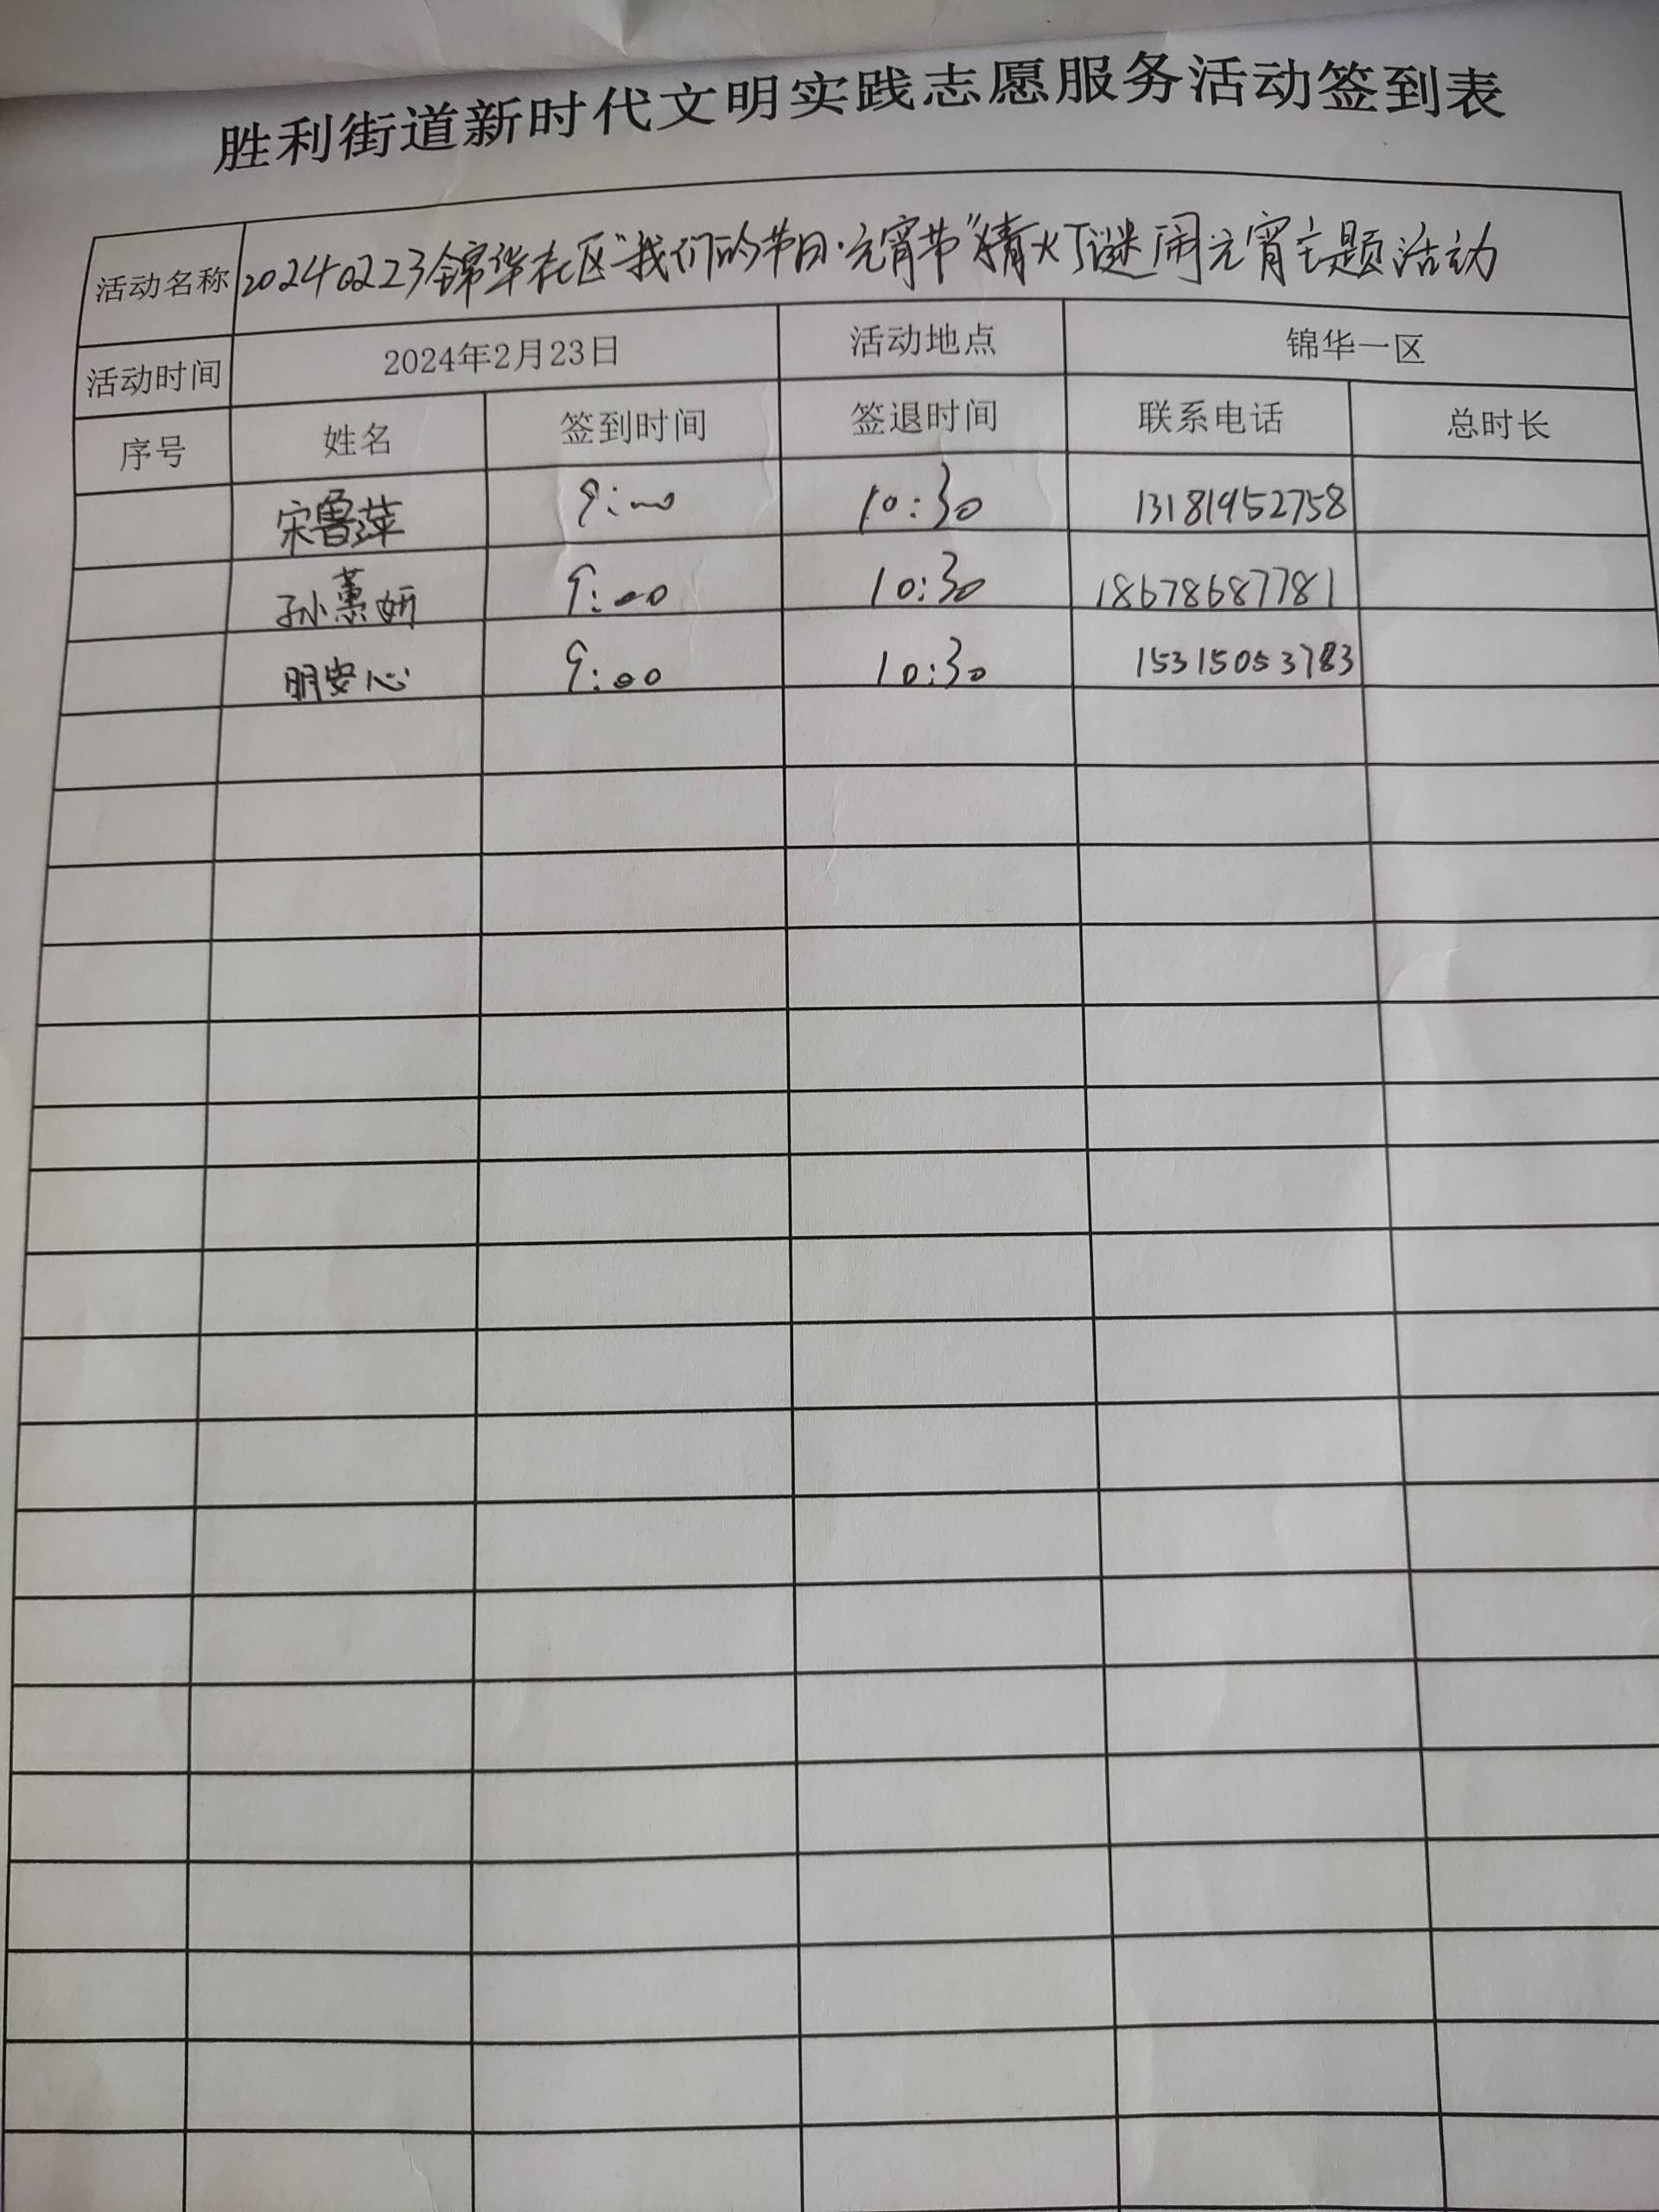 胜利街道新时代文明实践志愿服务活动签到表
活动名称 20240223锦华社区“我们的节日·元宵节”猜灯谜闹元宵主题活动
活动时间 2024年2月23日 活动地点 锦华一区
序号 姓名 签到时间 签退时间 联系电话 总时长
宋鲁萍 9:00 10:30 13181952758
孙蕙妍 9:00 10:30 18678687781
明安心 9:00 10:30 15315053783